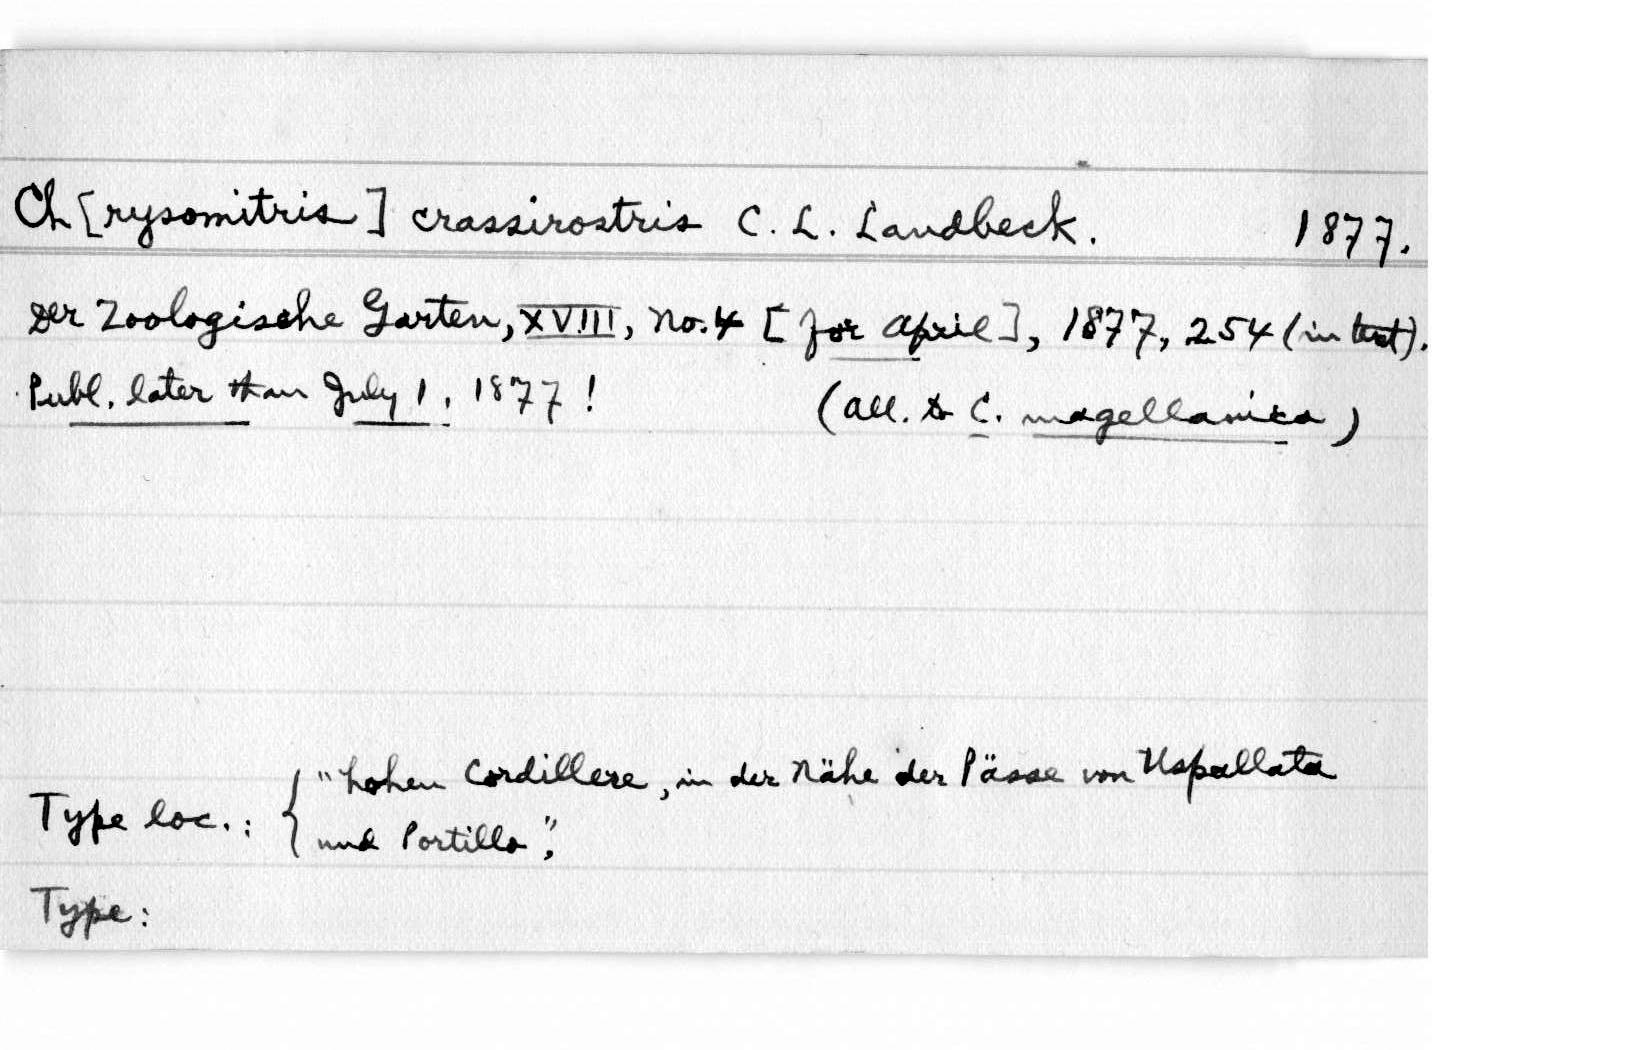 Ch[rysomitris] crassirostris C. L. Landbeck. 1877.
Der Zoologische Garten, XVIII, No. 4 [for April], 1877, 254 (in text).
Publ. later than July 1, 1877! (All. to C. magellanica)
"hohen Cordillere, in der Nähe der Pässe von Uspallata
Type loc.:
und Portillo".
Type: